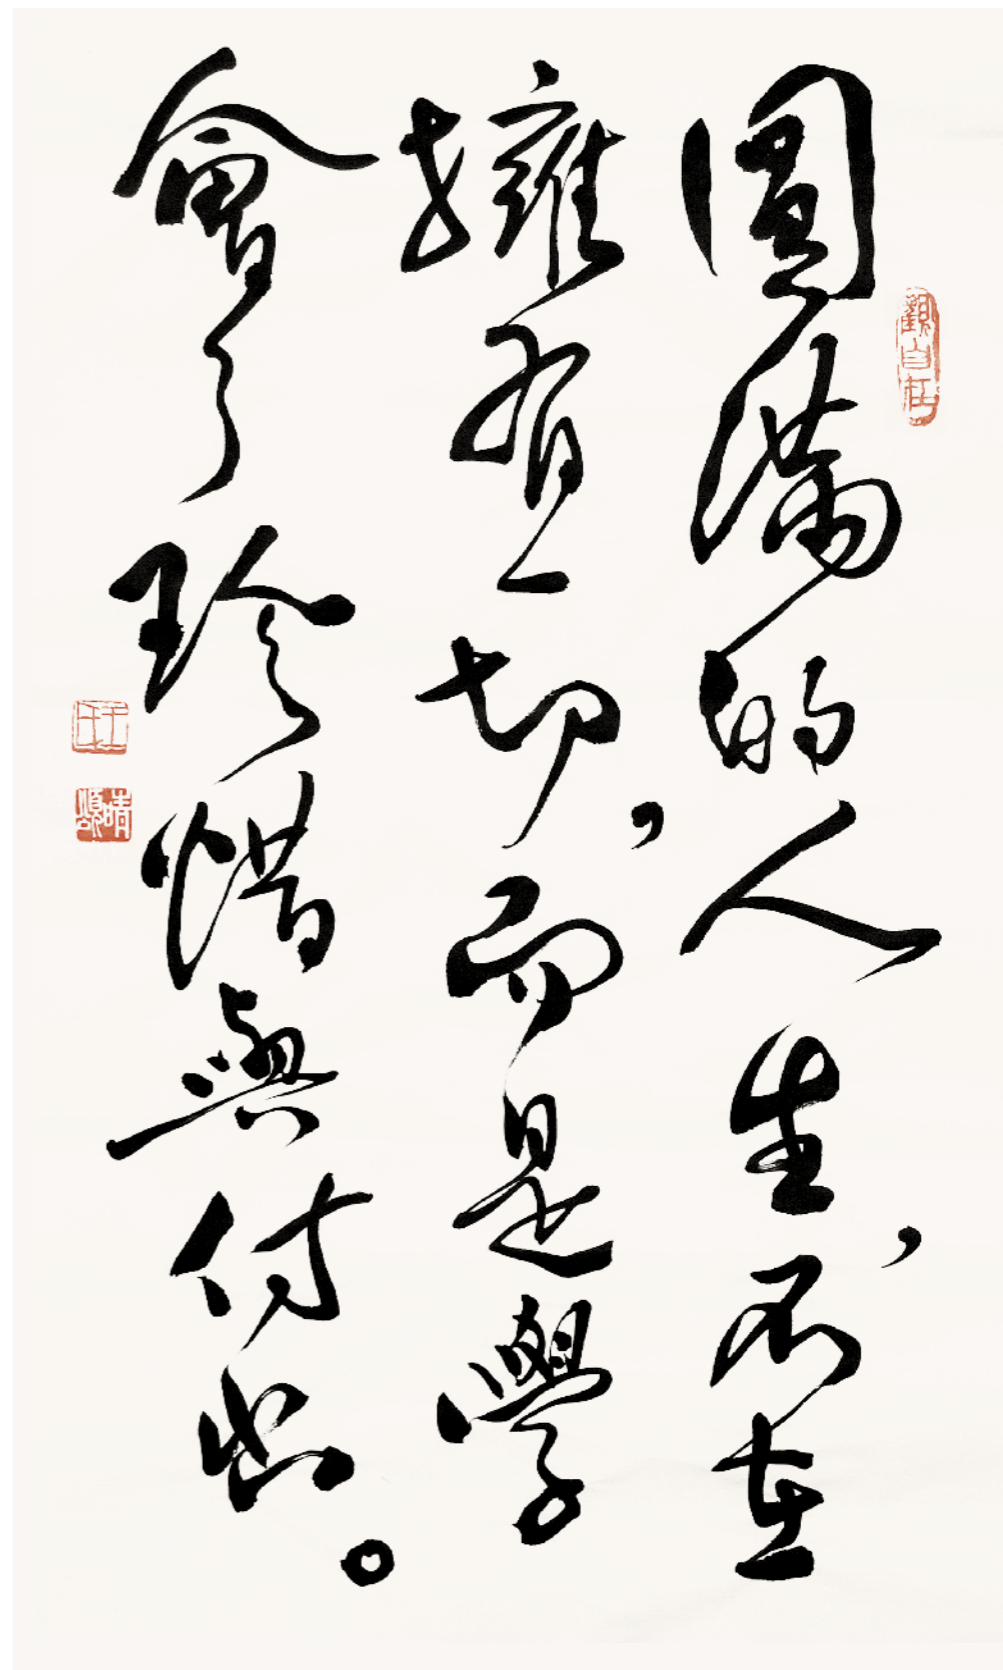 圓滿的人生，不在
擁有一切，而是學
會了珍惜與付出。
觀自在